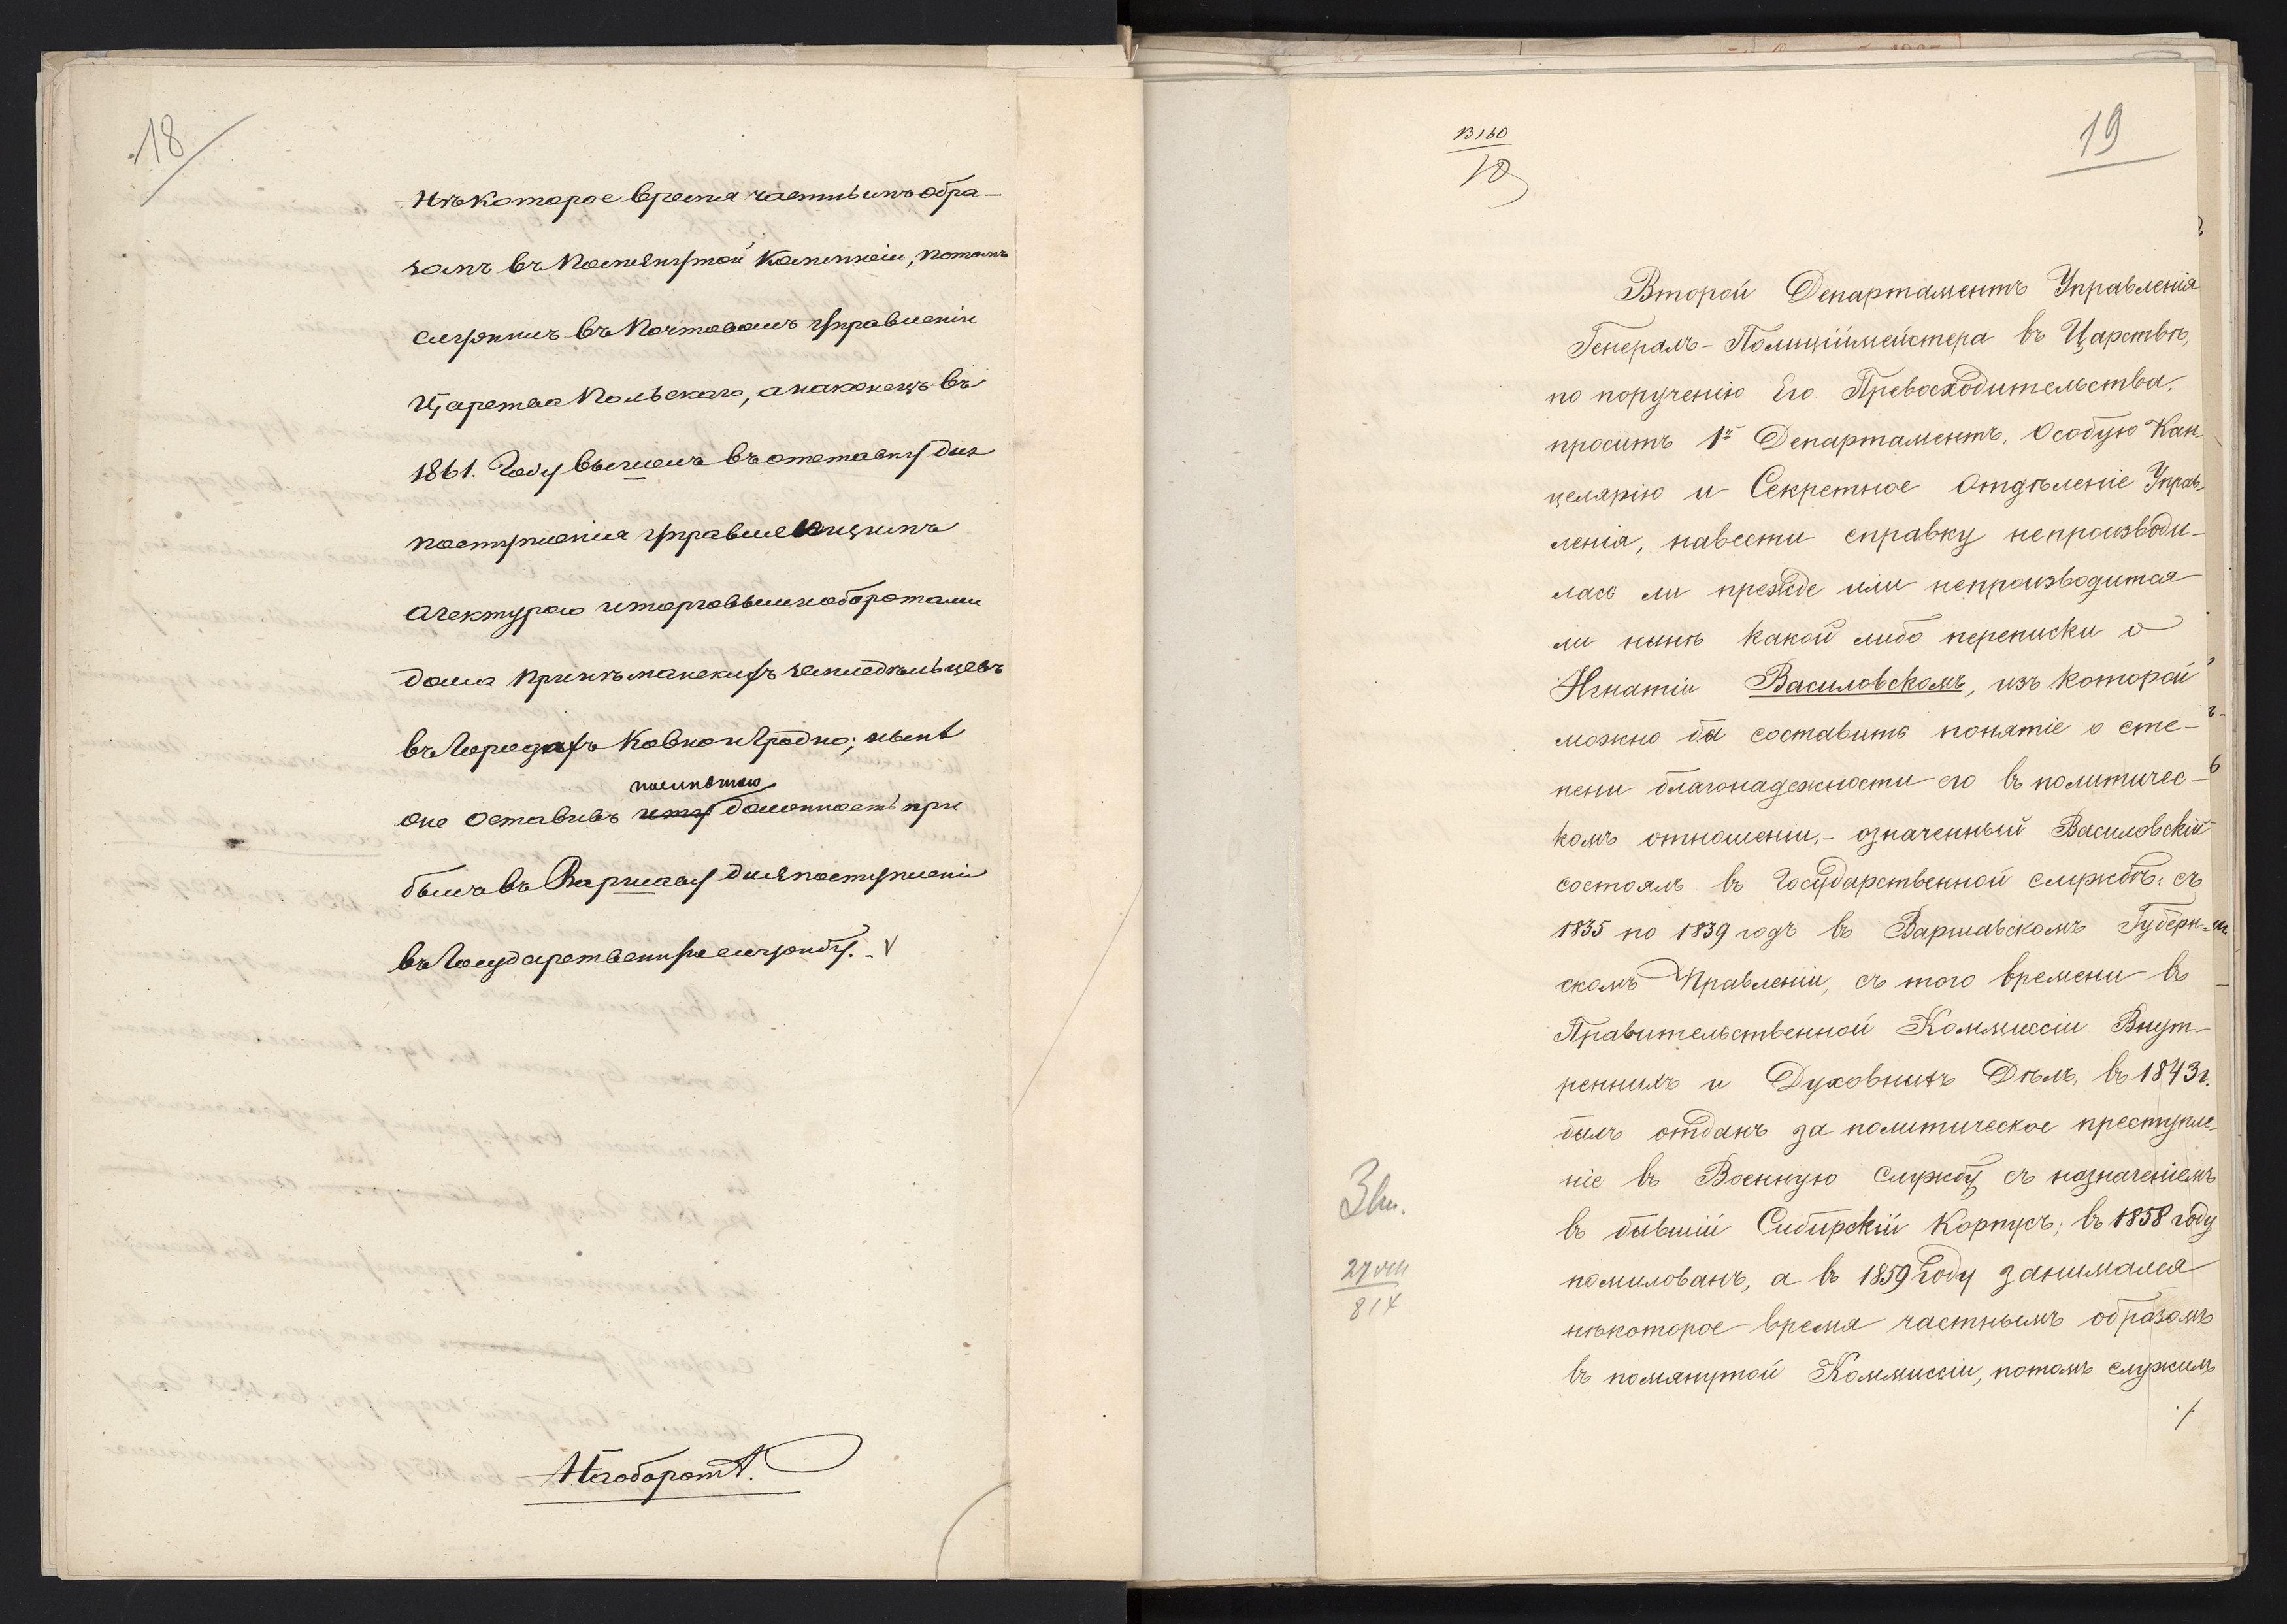 18
нѣкоторое время частнымъ обра-
зомъ въ помянутой Коммисіи, потомъ
служилъ въ Почтовомъ управленіи
Царства Польскаго, а наконецъ въ
1861. Году вышелъ въ отставку для
поступленія управляющимъ
агентурою и торговыми оборотами
дома при Нѣманскихъ земледѣльцевъ
въ Городахъ Ковно и Гродно; нынѣ
помянутою
оне оставивъ эту должность при
былъ въ Варшаву для поступленія
въ Государственную службу. V
Наоборотъ.
В160
18
19
Второй Департаментъ Управленія
Генералъ-Полиціймейстера въ Царствѣ,
по порученію Его Превосходительства,
проситъ 1й Департаментъ, Особую Кан
целярію и Секретное Отдѣленіе Управ-
ленія, навести справку непроизводи-
лась ли прежде или непроизводится
ли нынѣ какой либо переписки о
Игнатіи Василовскомъ, изъ которой
можно бы составить понятіе о сте-
пени благонадежности его въ политичес-
комъ отношеніи,- означенный Василовскій
состоялъ въ Государственной службѣ: съ
1835 по 1839 годъ въ Варшавскомъ Губерн-
скомъ Правленіи, съ того времени въ
Правительственной Коммиссіи Внут-
реннихъ и Духовныхъ Дѣлъ, въ 1843 г.
былъ отданъ за политическое преступле-
ніе въ Военную службу съ назначеніемъ
въ бывшій Сибирскій Корпусъ; въ 1858 году
помилованъ, а въ 1859 Году занимался
нѣкоторое время частнымъ образомъ
въ помянутой Коммиссіи, потомъ служилъ
./.